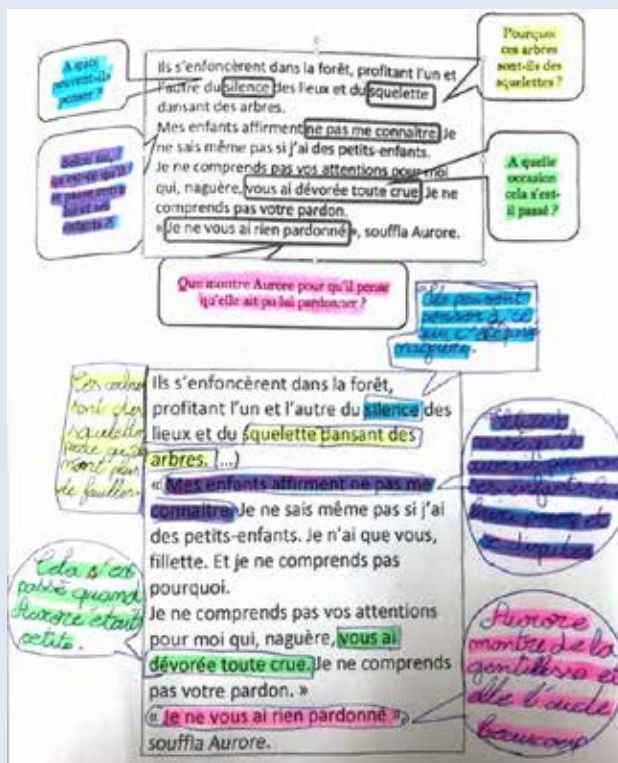 A quoi
peuvent-ils
penser ?
Ils s'enfoncèrent dans la forêt, profitant l'un et
l'autre du silence des lieux et du squelette
dansant des arbres.
Mes enfants affirment ne pas me connaître. Je
ne sais même pas si j'ai des petits-enfants.
Je ne comprends pas vos attentions pour moi
qui, naguère, vous ai dévorée toute crue. Je ne
comprends pas votre pardon.
« Je ne vous ai rien pardonné », souffla Aurore.
Pourquoi
ces arbres
sont-ils des
squelettes ?
Selon toi,
qu'est-ce qu'il
se passe entre
lui et ses
enfants ?
A quelle
occasion
cela s'est-
il passé ?
Que montre Aurore pour qu'il pense
qu'elle ait pu lui pardonner ?
Ils peuvent
penser à ce
qui c'est passé
naguère.
Ces arbres
sont des
squelettes
parce qu'ils
n'ont plus
de feuilles.
Ils s'enfoncèrent dans la forêt,
profitant l'un et l'autre du silence des
lieux et du squelette dansant des
arbres. (...)
« Mes enfants affirment ne pas me
connaître. Je ne sais même pas si j'ai
des petits-enfants. Je n'ai que vous,
fillette. Et je ne comprends pas
pourquoi.
Je ne comprends pas vos attentions
pour moi qui, naguère, vous ai
dévorée toute crue. Je ne comprends
pas votre pardon. »
« Je ne vous ai rien pardonné »,
souffla Aurore.
ses enfants
Cela s'est
passé quand
Aurore était
petite.
Aurore
montre de la
gentillesse et
elle l'aide
beaucoup